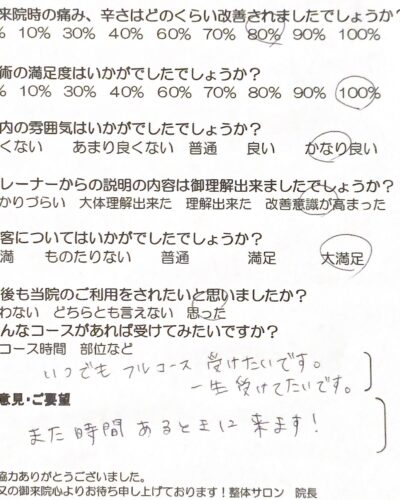 来院時の痛み、辛さはどのくらい改善されましたでしょうか?
% 10% 30% 40% 60% 70% 80% 90% 100%
術の満足度はいかがでしたでしょうか?
% 10% 30% 40% 60% 70% 80% 90% 100%
内の雰囲気はいかがでしたでしょうか?
くない あまり良くない 普通 良い かなり良い
レーナーからの説明の内容は御理解出来ましたでしょうか?
かりづらい 大体理解出来た 理解出来た 改善意識が高まった
客についてはいかがでしたでしょうか?
満 ものたりない 普通 満足 大満足
後も当院のご利用をされたいと思いましたか?
わない どちらとも言えない 思った
んなコースがあれば受けてみたいですか?
コース時間 部位など
いつでも フルコース 受けたいです。
一生受けてたいです。
意見・ご要望
また時間あるときに来ます!
協力ありがとうございました。
又の御来院心よりお待ち申し上げております!整体サロン 院長